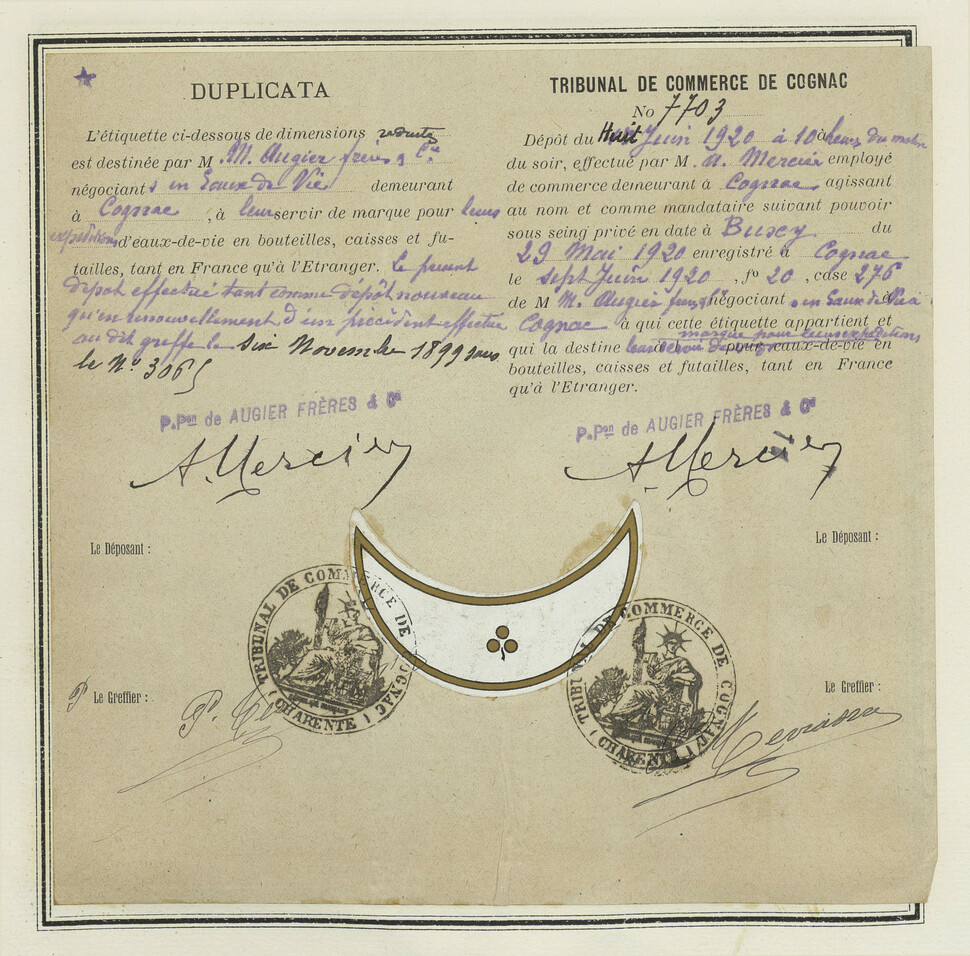 DUPLICATA
L'étiquette ci-dessous de dimensions réduites
est destinée par M. M. Augier frères & Cie
négociants en Eaux de Vie demeurant
à Cognac, à leur servir de marque pour leurs
expéditions d'eaux-de-vie en bouteilles, caisses et fu-
tailles, tant en France qu'à l'Etranger. Le présent
dépot effectué tant comme dépôt nouveau
qu'en renouvellement d'un précédent effectué
au dit greffe le six Novembre 1899 sous
le No 3065
P. Pon de AUGIER FRÈRES & Cie
A. Mercier
Le Déposant :
P Le Greffier :
TRIBUNAL DE COMMERCE DE COGNAC
(CHARENTE)
TRIBUNAL DE COMMERCE DE COGNAC
No 7703
Dépôt du Huit Juin 1920 à 10 heures du matin
du soir, effectué par M. A. Mercier employé
de commerce demeurant à Cognac agissant
au nom et comme mandataire suivant pouvoir
sous seing privé en date à du
29 Mai 1920 enregistré à Cognac
le sept Juin 1920, fo 20, case 276
de M M. Augier frères négociants en Eaux de Vie à
Cognac à qui cette étiquette appartient et
qui la destine à marque pour leurs expéditions d'eaux-de-vie en
bouteilles, caisses et futailles, tant en France
qu'à l'Etranger.
P. Pon de AUGIER FRÈRES & Cie
A. Mercier
Le Déposant :
Le Greffier :
TRIBUNAL DE COMMERCE DE COGNAC
(CHARENTE)